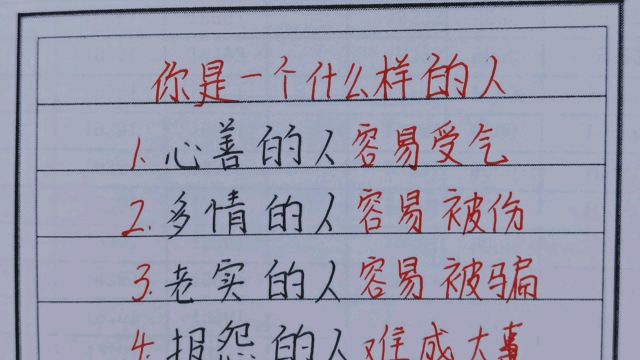 你是一个什么样的人
1.心善的人容易受气
2.多情的人容易被伤
3.老实的人容易被骗
4.报怨的人难成大事